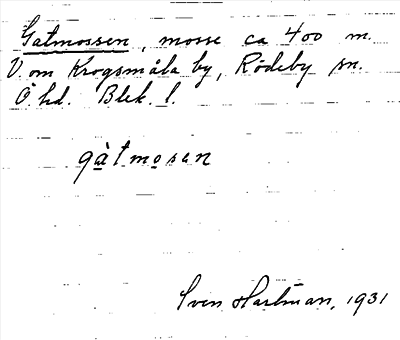 Gatmossen, mosse ca 400 m.
V. om Krogsmåla by, Rödeby sn.
Ö. hd. Blek. l.
gàtmosen
Sven Hartman, 1931